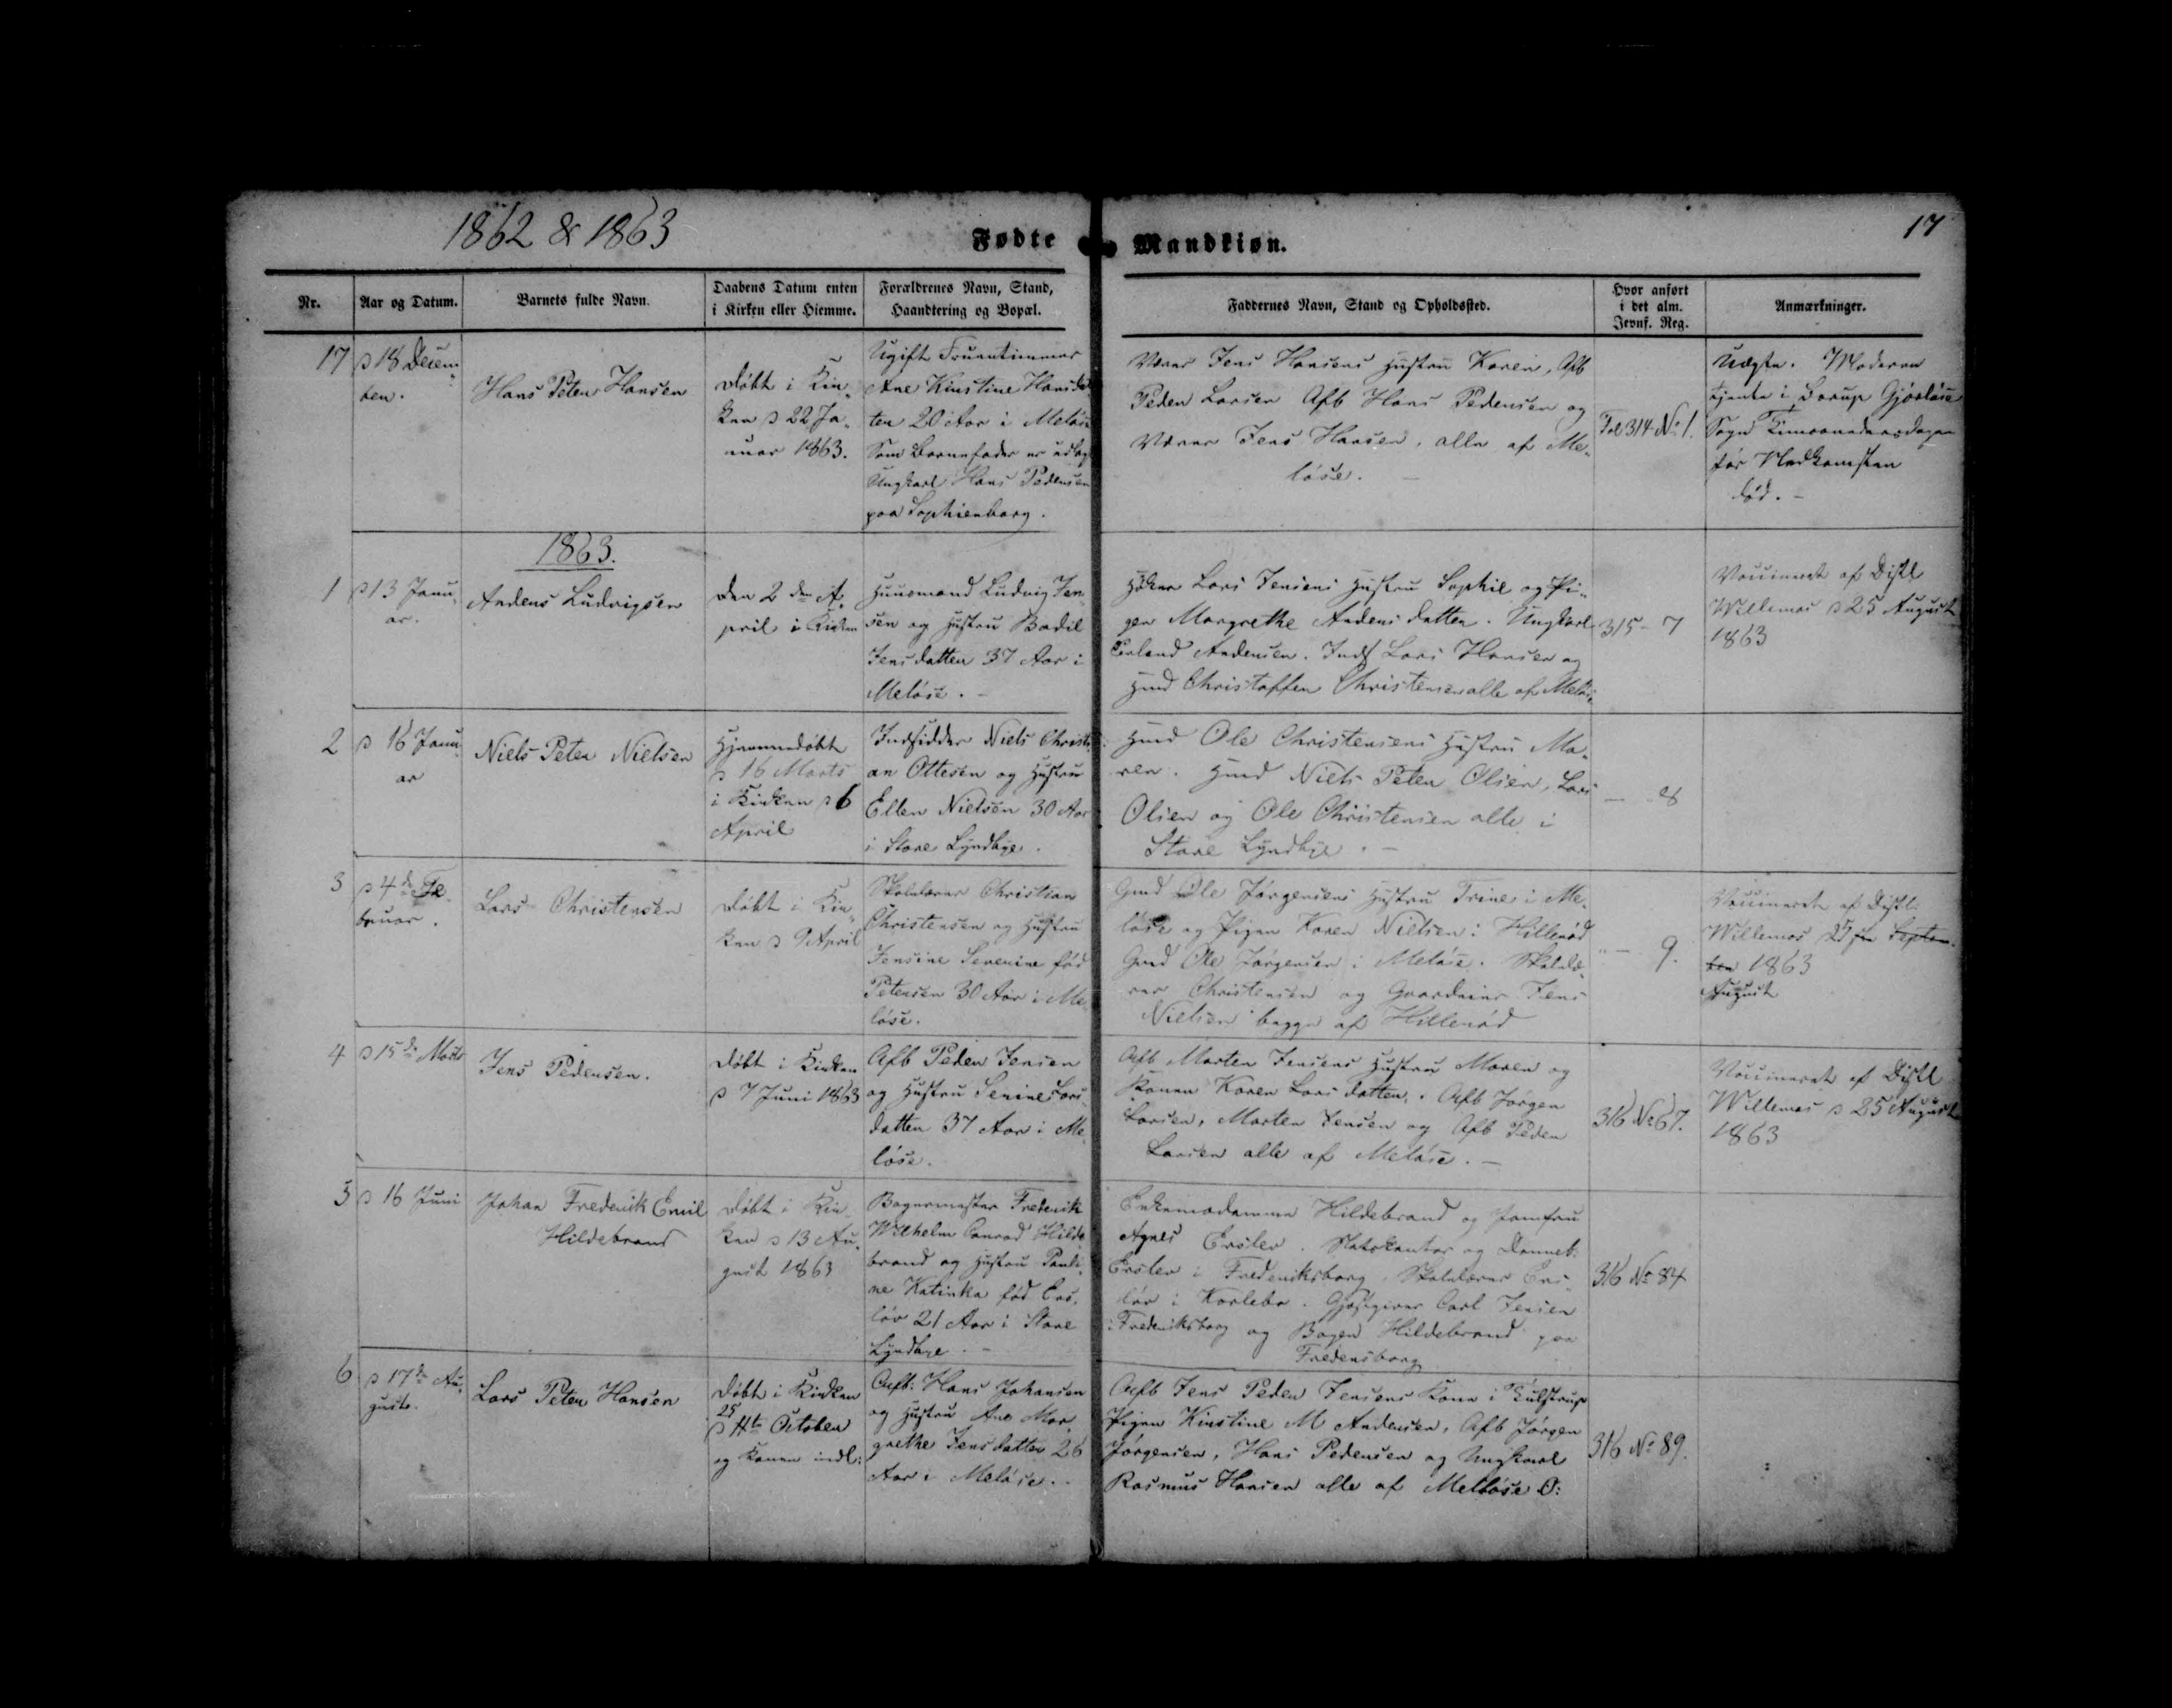 1862 & 1863
Fødte
Mandkiøn.
17
Nr.
Aar og Datum.
Barnets fulde Navn.
Daabens Datum enten
i Kirken eller Hiemme.
Forældrenes Navn, Stand,
Haandtering og Bopæl.
Faddernes Navn, Stand og Opholdssted.
Hvor anført
i det alm.
Jevnf. Reg.
Anmærkninger.
17
D 18 Decem-
ber.
Hans Peter Hansen
Døbt i Kir-
ken D 22 Ja-
nuar 1863.
Ugift Fruentimmer
Ane Kirstine Hansdat
ter 20 Aar i Meløse
Som Barnefader er udlagt
Ungkarl Hans Pedersen
paa Sophienborg.
Væver Jens Hansens Hustru Karen, Afb
Peder Larsen Afb Hans Pedersen og
Væver Jens Hansen, alle af Me-
løse. -
Fol 314 No 1.
Uægte. Moderen
tjente i Borup Gjørløse
Sogn Timaanedersdagen
før Nedkomsten
død. -
1863.
1
D 13 Janu-
ar.
Anders Ludvigsen
Den 2 den A-
pril i Kirken
Huusmand Ludvig Jen-
sen og Hustru Bodil
Jensdatter 37 Aar i
Meløse. -
Høker Lars Jensens Hustru Sophie og Pi-
gen Margrethe Andersdatter. Ungkarl
Erland Andersen. Inds Lars Hansen og
Hmd Christoffer Christensen alle af Meløse
315 - 7
Vaccineret af Distl
Willemos D 25 August
1863
2
D 16 Janu-
ar
Niels Peter Nielsen
Hjemmedøbt
D 16 Marts
i Kirken D 6
April
Indsidder Niels Christi-
an Ottesen og Hustru
Ellen Nielsen 30 Aar
i Store Lyndbye.
Hmd Ole Christensens Hustru Ma-
ren. Hmd Niels Peter Olsen, Lars
Olsen og Ole Christensen alle i
Store Lyndbye. -
— 8
3
D 4de Fe-
bruar.
Lars Christensen
Døbt i Kir-
ken D 9 April
Skolelærer Christian
Christensen og Hustru
Jensine Severine fød
Petersen 30 Aar i Me-
løse.
Gmd Ole Jørgensens Hustru Trine i Me-
løse og Pigen Karen Nielsen i Hillerød
Gmd Ole Jørgensen i Meløse. Skolelæ-
rer Christensen og Gaardeier Jens
Nielsen begge af Hillerød
— 9.
Vaccineret af Distl:
Willemos 25 Septem-
ber 1863
August
4
D 15de Marts
Jens Pedersen.
Døbt i Kirken
D 7 Juni 1863
Afb Peder Jensen
og Hustru Serine Lars-
datter 37 Aar i Me-
løse.
Afb Morten Jensens Hustru Maren og
Konen Karen Larsdatter. Afb Jørgen
Larsen, Morten Jensen og Afb Peder
Larsen alle af Meløse. -
316 No 67.
Vaccineret af Distl
Willemos D 25 August
1863
5
D 16 Juni
Johan Frederik Emil
Hildebrand
Døbt i Kir-
ken D 13 Au-
gust 1863
Bagermester Frederik
Wilhelm Conrad Hilde
brand og Hustru Pauli-
ne Katinka fød Ers-
løv 21 Aar i Store
Lyndbye. -
Enkemadamme Hildebrand og Jomfru
Agnes Erslev. Slotskantor og Danneb:
Erslev i Frederiksborg. Skolelærer Ers-
løv i Karlebo. Gjæstgiver Carl Jensen
i Frederiksborg og Bager Hildebrand paa
Fredensborg
316 No 84
6
D 17de Au-
gust.
Lars Peter Hansen
Døbt i Kirken
25
D 11te October
og Konen indl:
Aufb: Hans Johansen
og Hustru Ane Mar-
grethe Jensdatter 26
Aar i Meløse. -
Aufb Jens Peder Jensens Kone i
Pigen Kirstine M Andersen, Afb Jørgen
Jørgensen, Hans Pedersen og Ungkarl
Rasmus Hansen alle af Melløse O:
316 No 89.